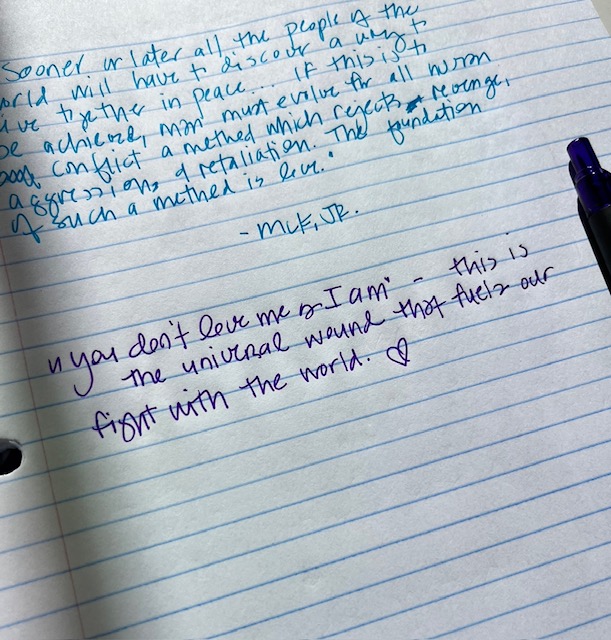 Sooner or later all the people of the
world will have to discover a way to
live together in peace... If this is to
be achieved, man must evolve for all human
conflict a method which rejects revenge,
aggression, & retaliation. The foundation
of such a method is love."
- MLK, JR.
"you don't love me as I am" - this is
the universal wound that fuels our
fight with the world. ♡